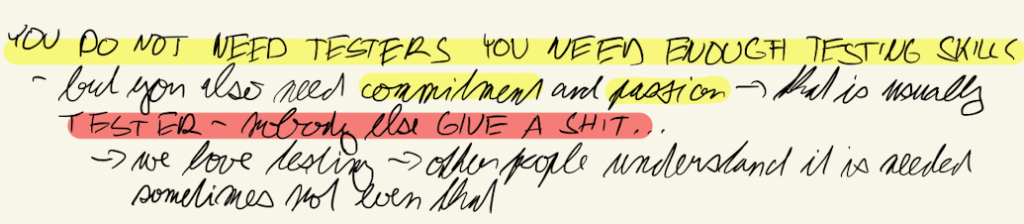 YOU DO NOT NEED TESTERS YOU NEED ENOUGH TESTING SKILLS
- but you also need commitment and passion → that is usually
TESTER - nobody else GIVE A SHIT...
→ we love testing → other people understand it is needed
sometimes not even that